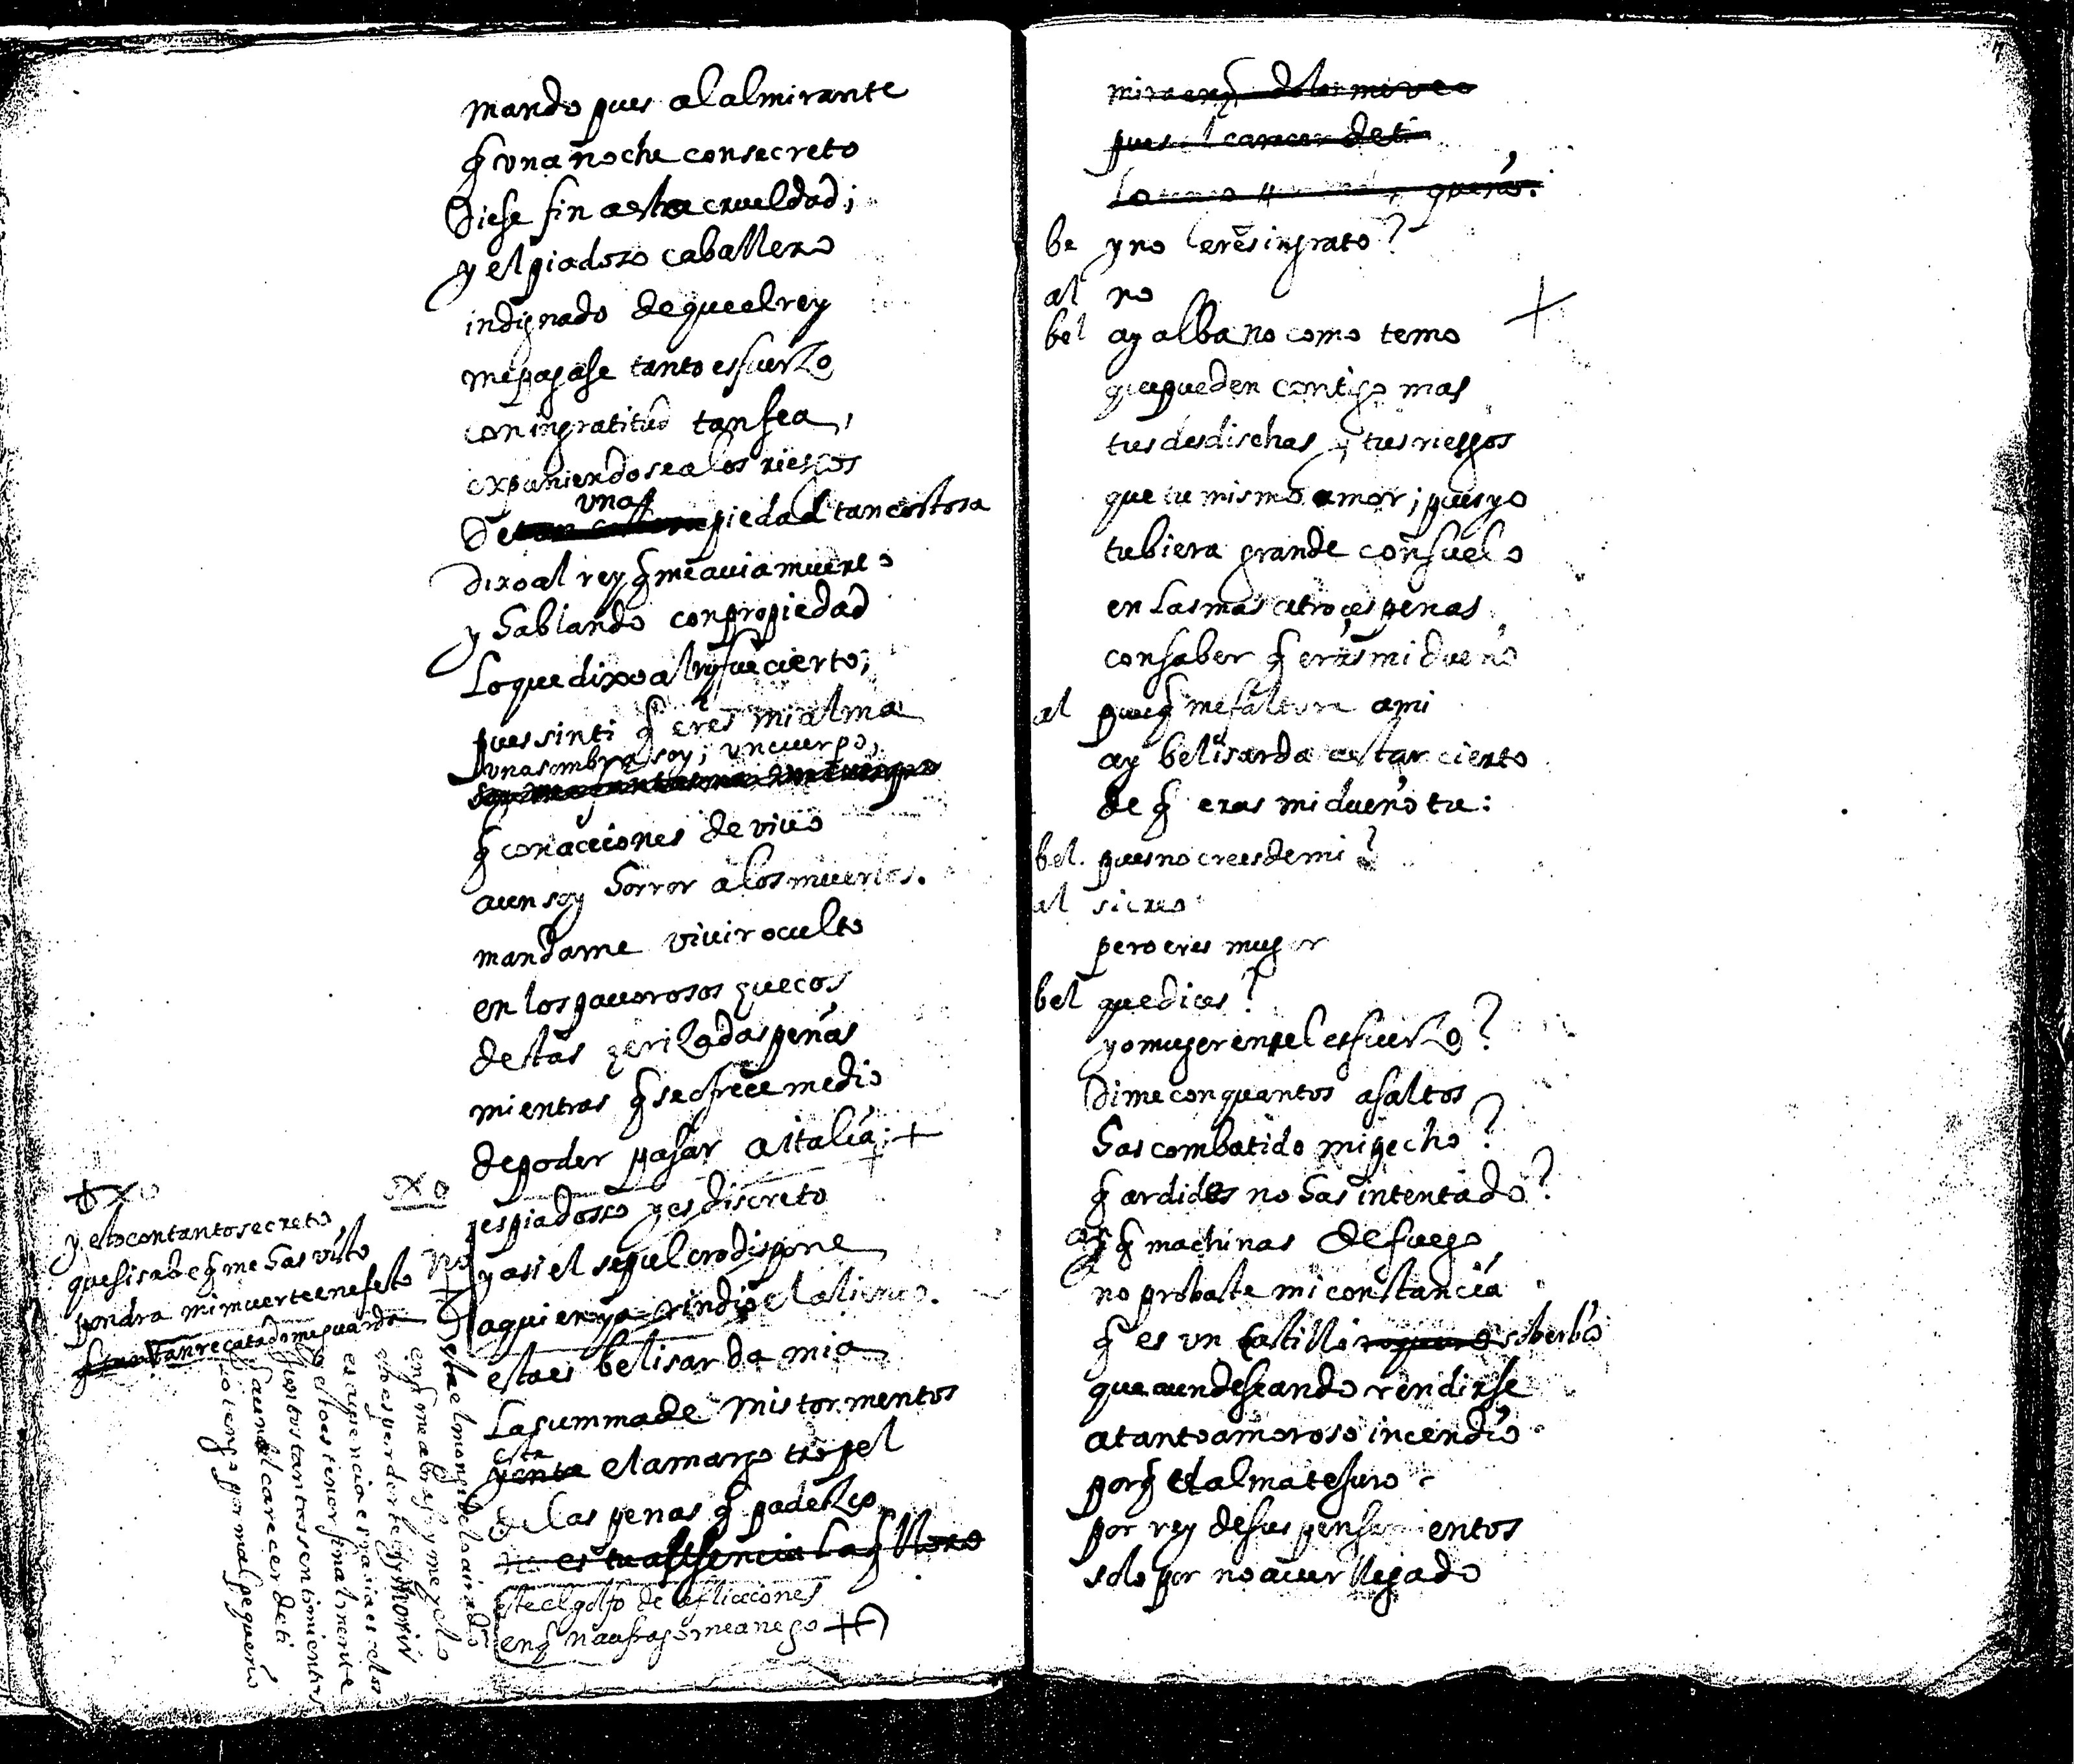 mando pues al almirante
q una noche con secreto
Diese fin a esta crueldad;
y el piadoso caballero
indignado de que el rey
me pagase tanto esfuerzo
con ingratitud tan fea,
expuniendose a los riesgos
De una piedad tan costosa
dixo al rey q me auia muerto
y hablando con propiedad
Lo que dixo al rey fue cierto;
pues sinti q eres mi alma
una sombra soy; un cuerpo,
q con acciones de viuo
aun soy horror a los muertos.
mandame viuir oculto
en los pauorosos huecos
destas herizadas peñas
mientras q se ofrece medio
de poder pasar a italia; +
y es piadosso y es discreto
y asi el sepulcro dispone
a quien ya rindio el aliento.
esta es belisarda mia
La summa de mis tormentos
este el amargo tropel
de las penas q padezco
no es tu ausencia la q lloro
este el golfo de aflicciones
en q naufrago me anego +
y esto con tanto secreto
que si sabe q me has visto
pondra mi muerte en efeto
tan recatado me guarda
no
este el mongibelo airado
en q me abraso y me yelo
esto es perderte y morir
es ausencia es rabia es celos
y esto es tener finalmente
juntos tantos sentimientos
q aun el carecer de ti
lo tengo por mal pequeño
mira en q dolor me veo
pues el carecer de ti
lo tengo pequeño.
be y no eres ingrato?
al no
bel ay albano como temo
que pueden contigo mas
tus desdichas y tus riesgos
que tu mismo amor; pues yo
tubiera grande consuelo
en las mas atroces penas
con saber q eras mi dueño
al pues q me faltara a mi
ay belisarda a estar cierto
de q eras mi dueño tu:
bel. pues no crees de mi?
al si creo
pero eres muger
bel que dices?
yo muger en el esfuerzo?
Dime con quantos asaltos
has combatido mi pecho?
q ardides no has intentado?
q machinas de fuego
no probaste mi constancia
q es un castillo soberbio
que aun deseando rendirse
a tanto amoroso incendio
porq el alma te juro
por rey de sus pensamientos
solo por no auer llegado